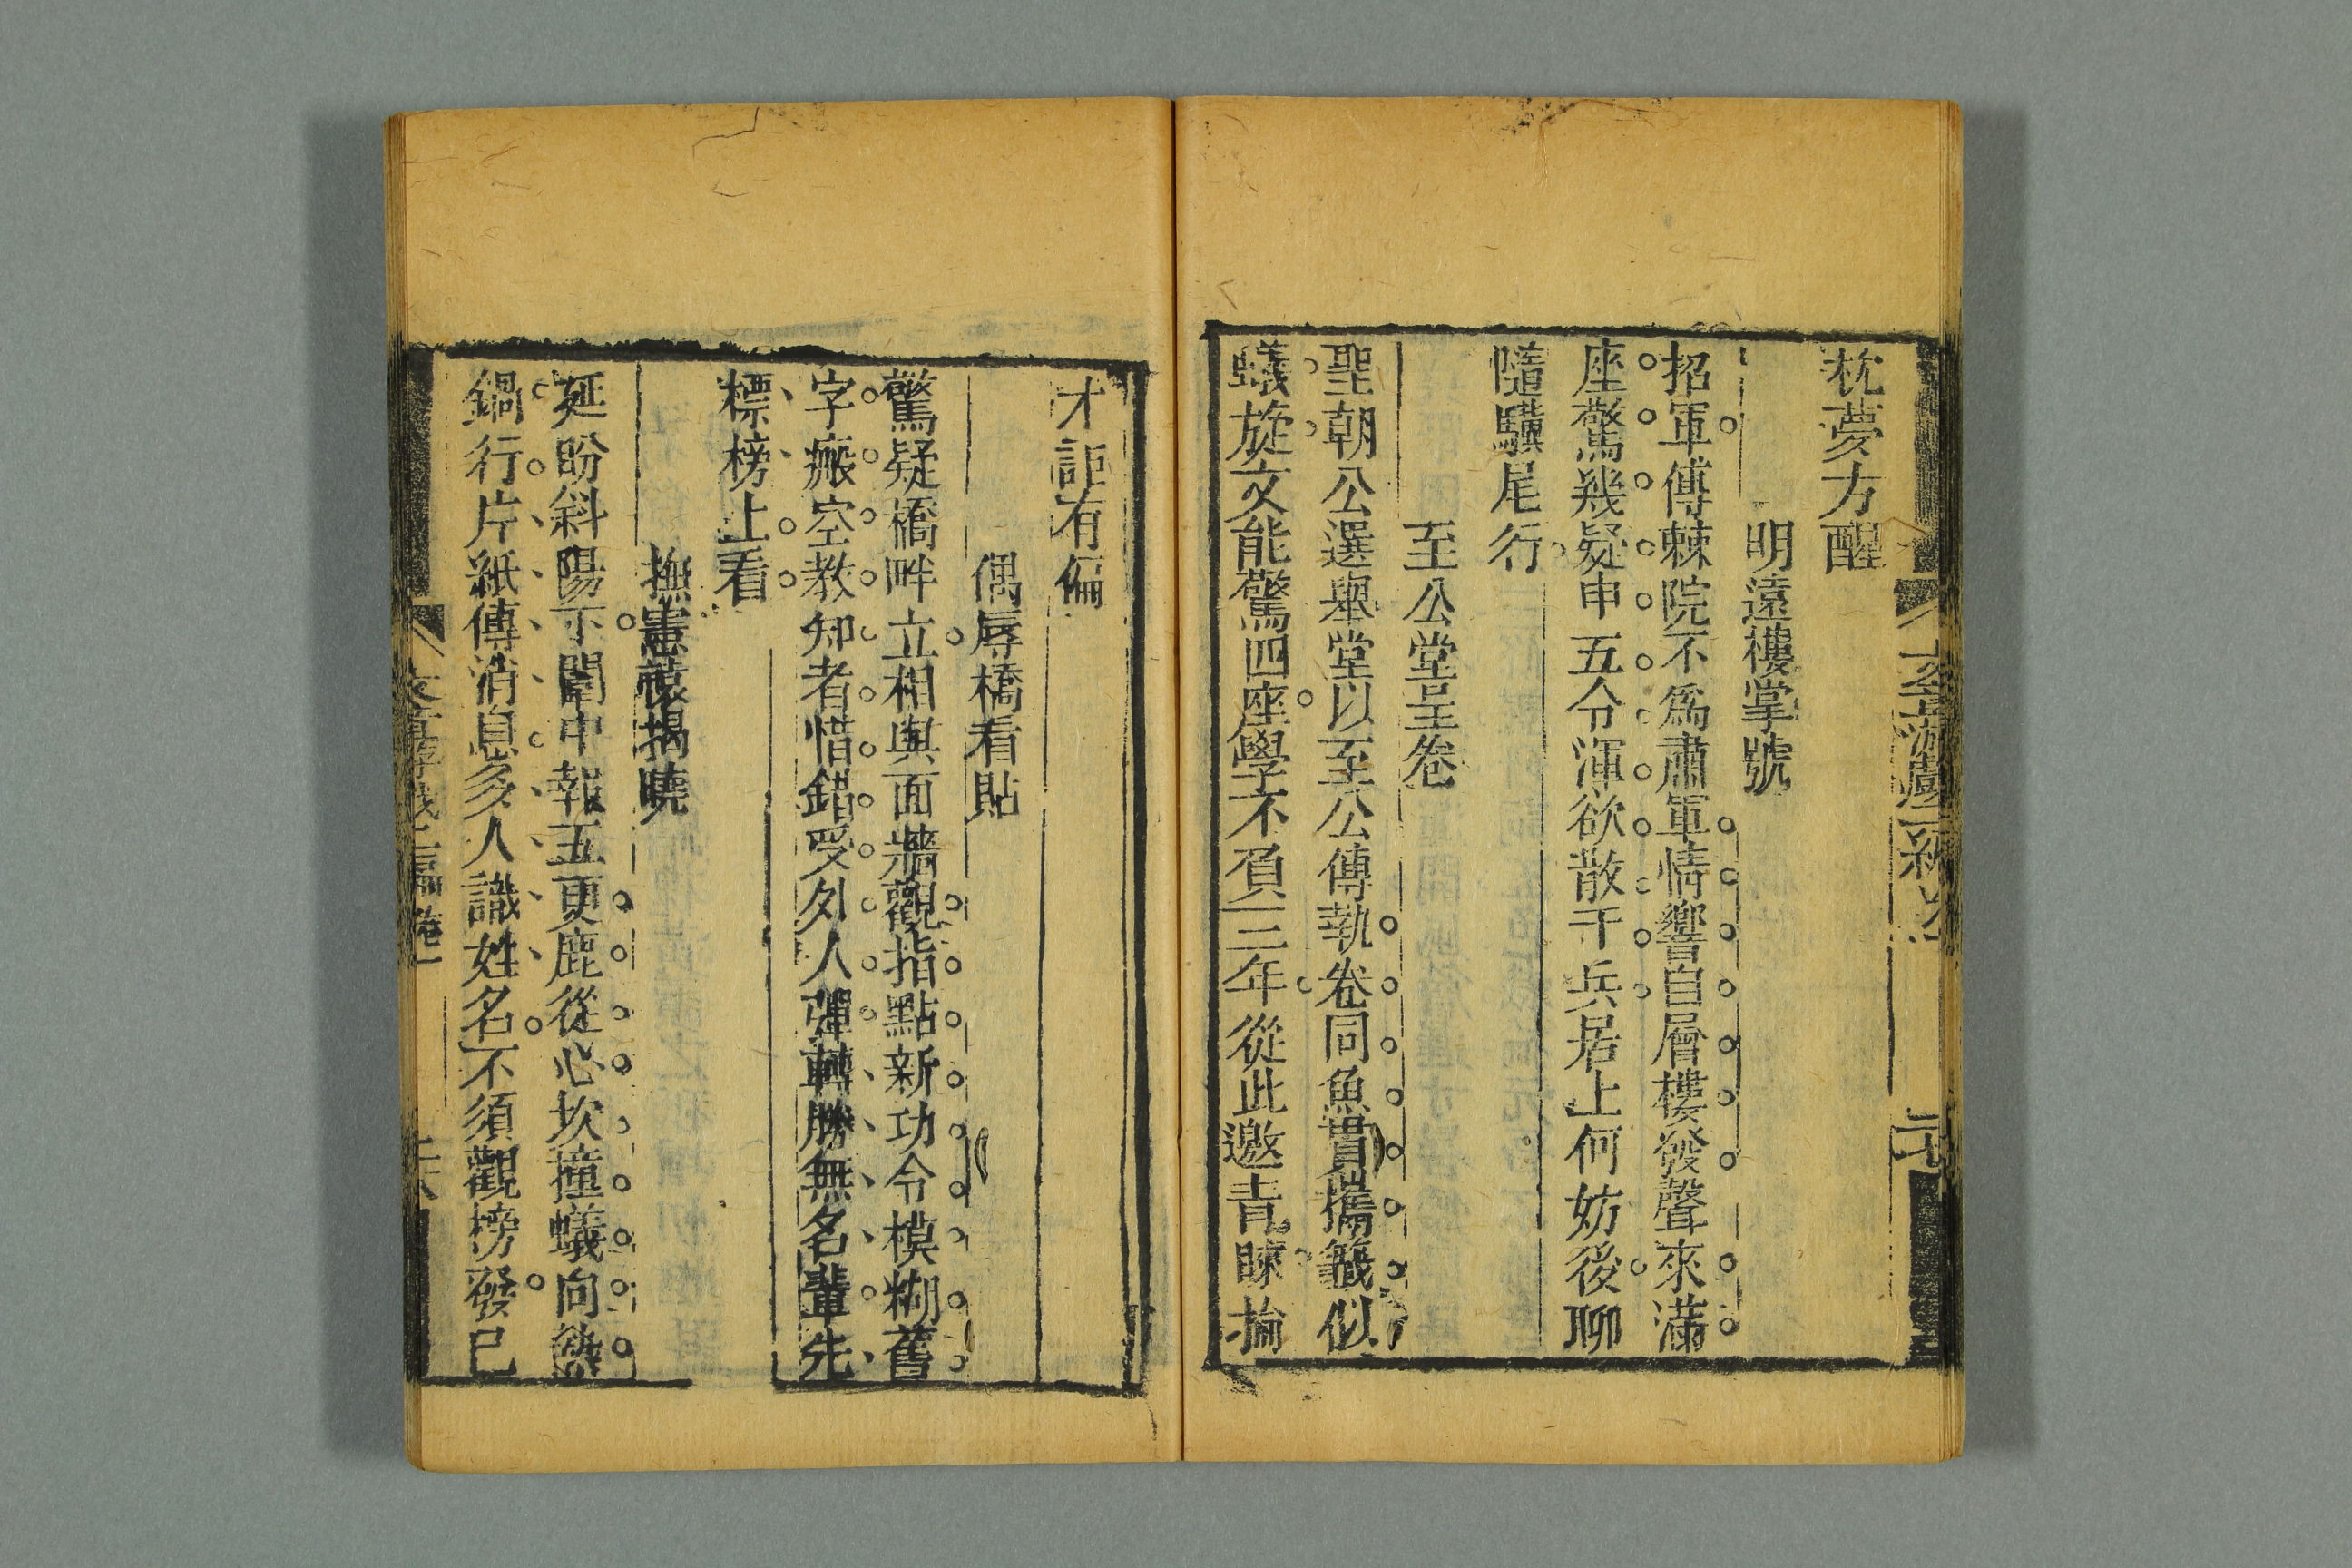 枕夢方醒
明遠樓掌號
招軍傳棘院不爲肅軍情響自層樓發聲來滿
座驚幾疑申五令渾欲散千兵居上何妨後聊
隨驥尾行
至公堂呈卷
聖朝公選舉堂以至公傳執卷同魚貫攜籤似
蟻旋文能驚四座學不負三年從此邀青睞掄
才詎有偏
偶辱橋看貼
驚疑橋畔立相與面牆觀指點新功令模糊舊
字瘢空教知者惜錯受外人彈轉勝無名輩先
標榜上看
撫憲轅揭曉
延盼斜陽下闈中報五更鹿從心坎撞蟻向熱
鍋行片紙傳消息多人識姓名不須觀榜發已
文章游戲二編卷一